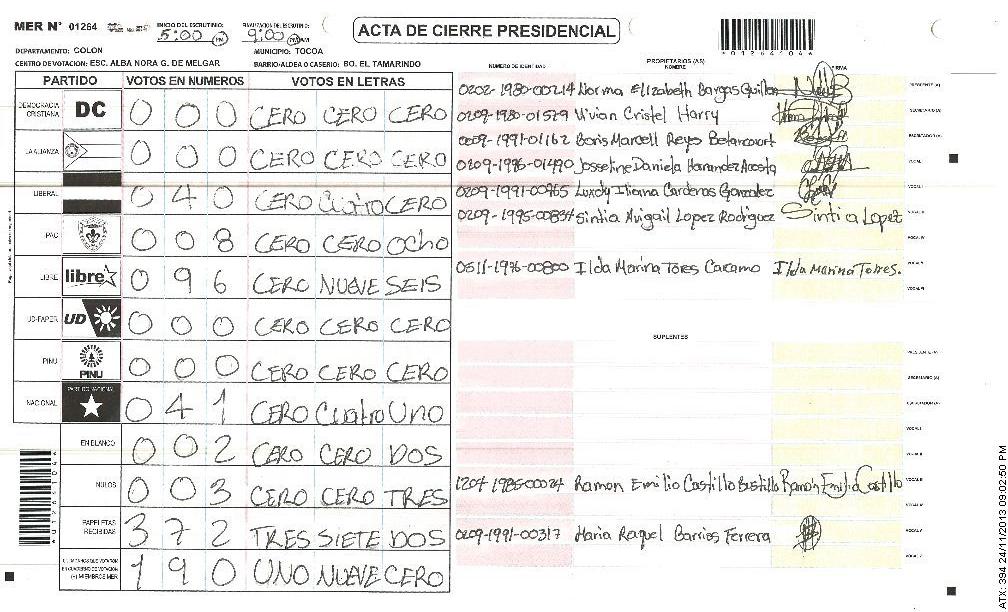 MER N° 01264 INICIO DEL ESCRUTINIO: 5:00 PM FINALIZACION DEL ESCRUTINIO: 9:00 PM AM
ACTA DE CIERRE PRESIDENCIAL
DEPARTAMENTO: COLON MUNICIPIO: TOCOA
CENTRO DE VOTACION: ESC. ALBA NORA G. DE MELGAR BARRIO/ALDEA O CASERIO: BO. EL TAMARINDO
PARTIDO VOTOS EN NUMEROS VOTOS EN LETRAS
DEMOCRACIA CRISTIANA DC 0 0 0 CERO CERO CERO
LA ALIANZA 0 0 0 CERO CERO CERO
LIBERAL 0 4 0 CERO Cuatro CERO
PAC 0 0 8 CERO CERO Ocho
LIBRE libre 0 9 6 CERO NUEVE SEIS
UD-FAPER UD 0 0 0 CERO CERO CERO
PINU PINU 0 0 0 CERO CERO CERO
NACIONAL PARTIDO NACIONAL 0 4 1 CERO Cuatro Uno
EN BLANCO 0 0 2 CERO CERO DOS
NULOS 0 0 3 CERO CERO TRES
PAPELETAS RECIBIDAS 3 7 2 TRES SIETE DOS
(+) MIEMBROS MER 1 9 0 UNO NUEVE CERO
PROPIETARIOS (AS)
NUMERO DE IDENTIDAD NOMBRE FIRMA
0202-1980-00214 Norma Elizabeth Bargas Guillen PRESIDENTE (A)
0209-1980-01579 Vivian Cristel Harry SECRETARIO (A)
0209-1991-01162 Boris Marcell Reyes Betancourt ESCRUTADOR (A)
0209-1996-01490 Josseline Daniela Hernandez Acosta VOCAL I
0209-1991-00465 Luxdy Iliana Cardenas Gonzalez VOCAL II
0209-1995-00834 Sintia Abigail Lopez Rodriguez Sintia Lopez VOCAL III
VOCAL IV
0511-1976-00800 Ilda Marina Tores Caramo Ilda Marina Torres. VOCAL V
VOCAL VI
SUPLENTES
PRESIDENTE (A)
SECRETARIO (A)
ESCRUTADOR (A)
VOCAL I
VOCAL II
1204 1985-00024 Ramon Emilio Castillo Bustillo Ramón Emilio Castillo VOCAL III
VOCAL IV
0209-1991-00317 Maria Raquel Barrios Ferrera VOCAL V
ATX: 394 24/11/2013 09:02:50 PM